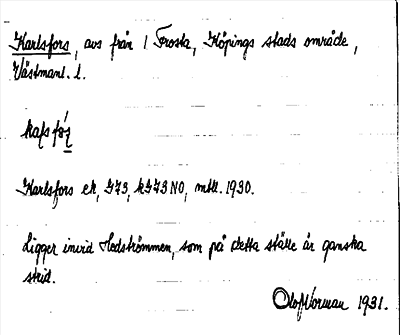 Karlsfors, avs från 1 Frosta, Köpings stads område,
Västmanl. l.
Karlsfors ek, 273, k273 NO, mtbl. 1930.
Ligger invid Hedströmmen, som på detta ställe är ganska
strid.
Olof Norman 1931.